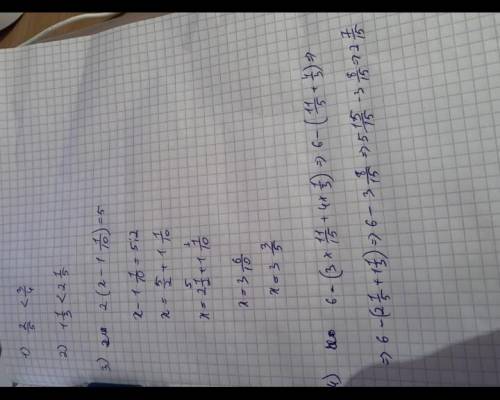 1) 2/5 < 3/4
2) 1 1/3 < 2 1/5
3) 2(x - 1 1/10) = 5
x - 1 1/10 = 5:2
x = 5/2 + 1 1/10
x = 2 1/2 + 1 1/10
x = 3 6/10
x = 3 3/5
4) 6 - (3 x 11/15 + 4 x 1/3) => 6 - (11/5 + 4/3) =>
=> 6 - (2 1/5 + 1 1/3) => 6 - 3 8/15 => 5 15/15 - 3 8/15 => 2 7/15